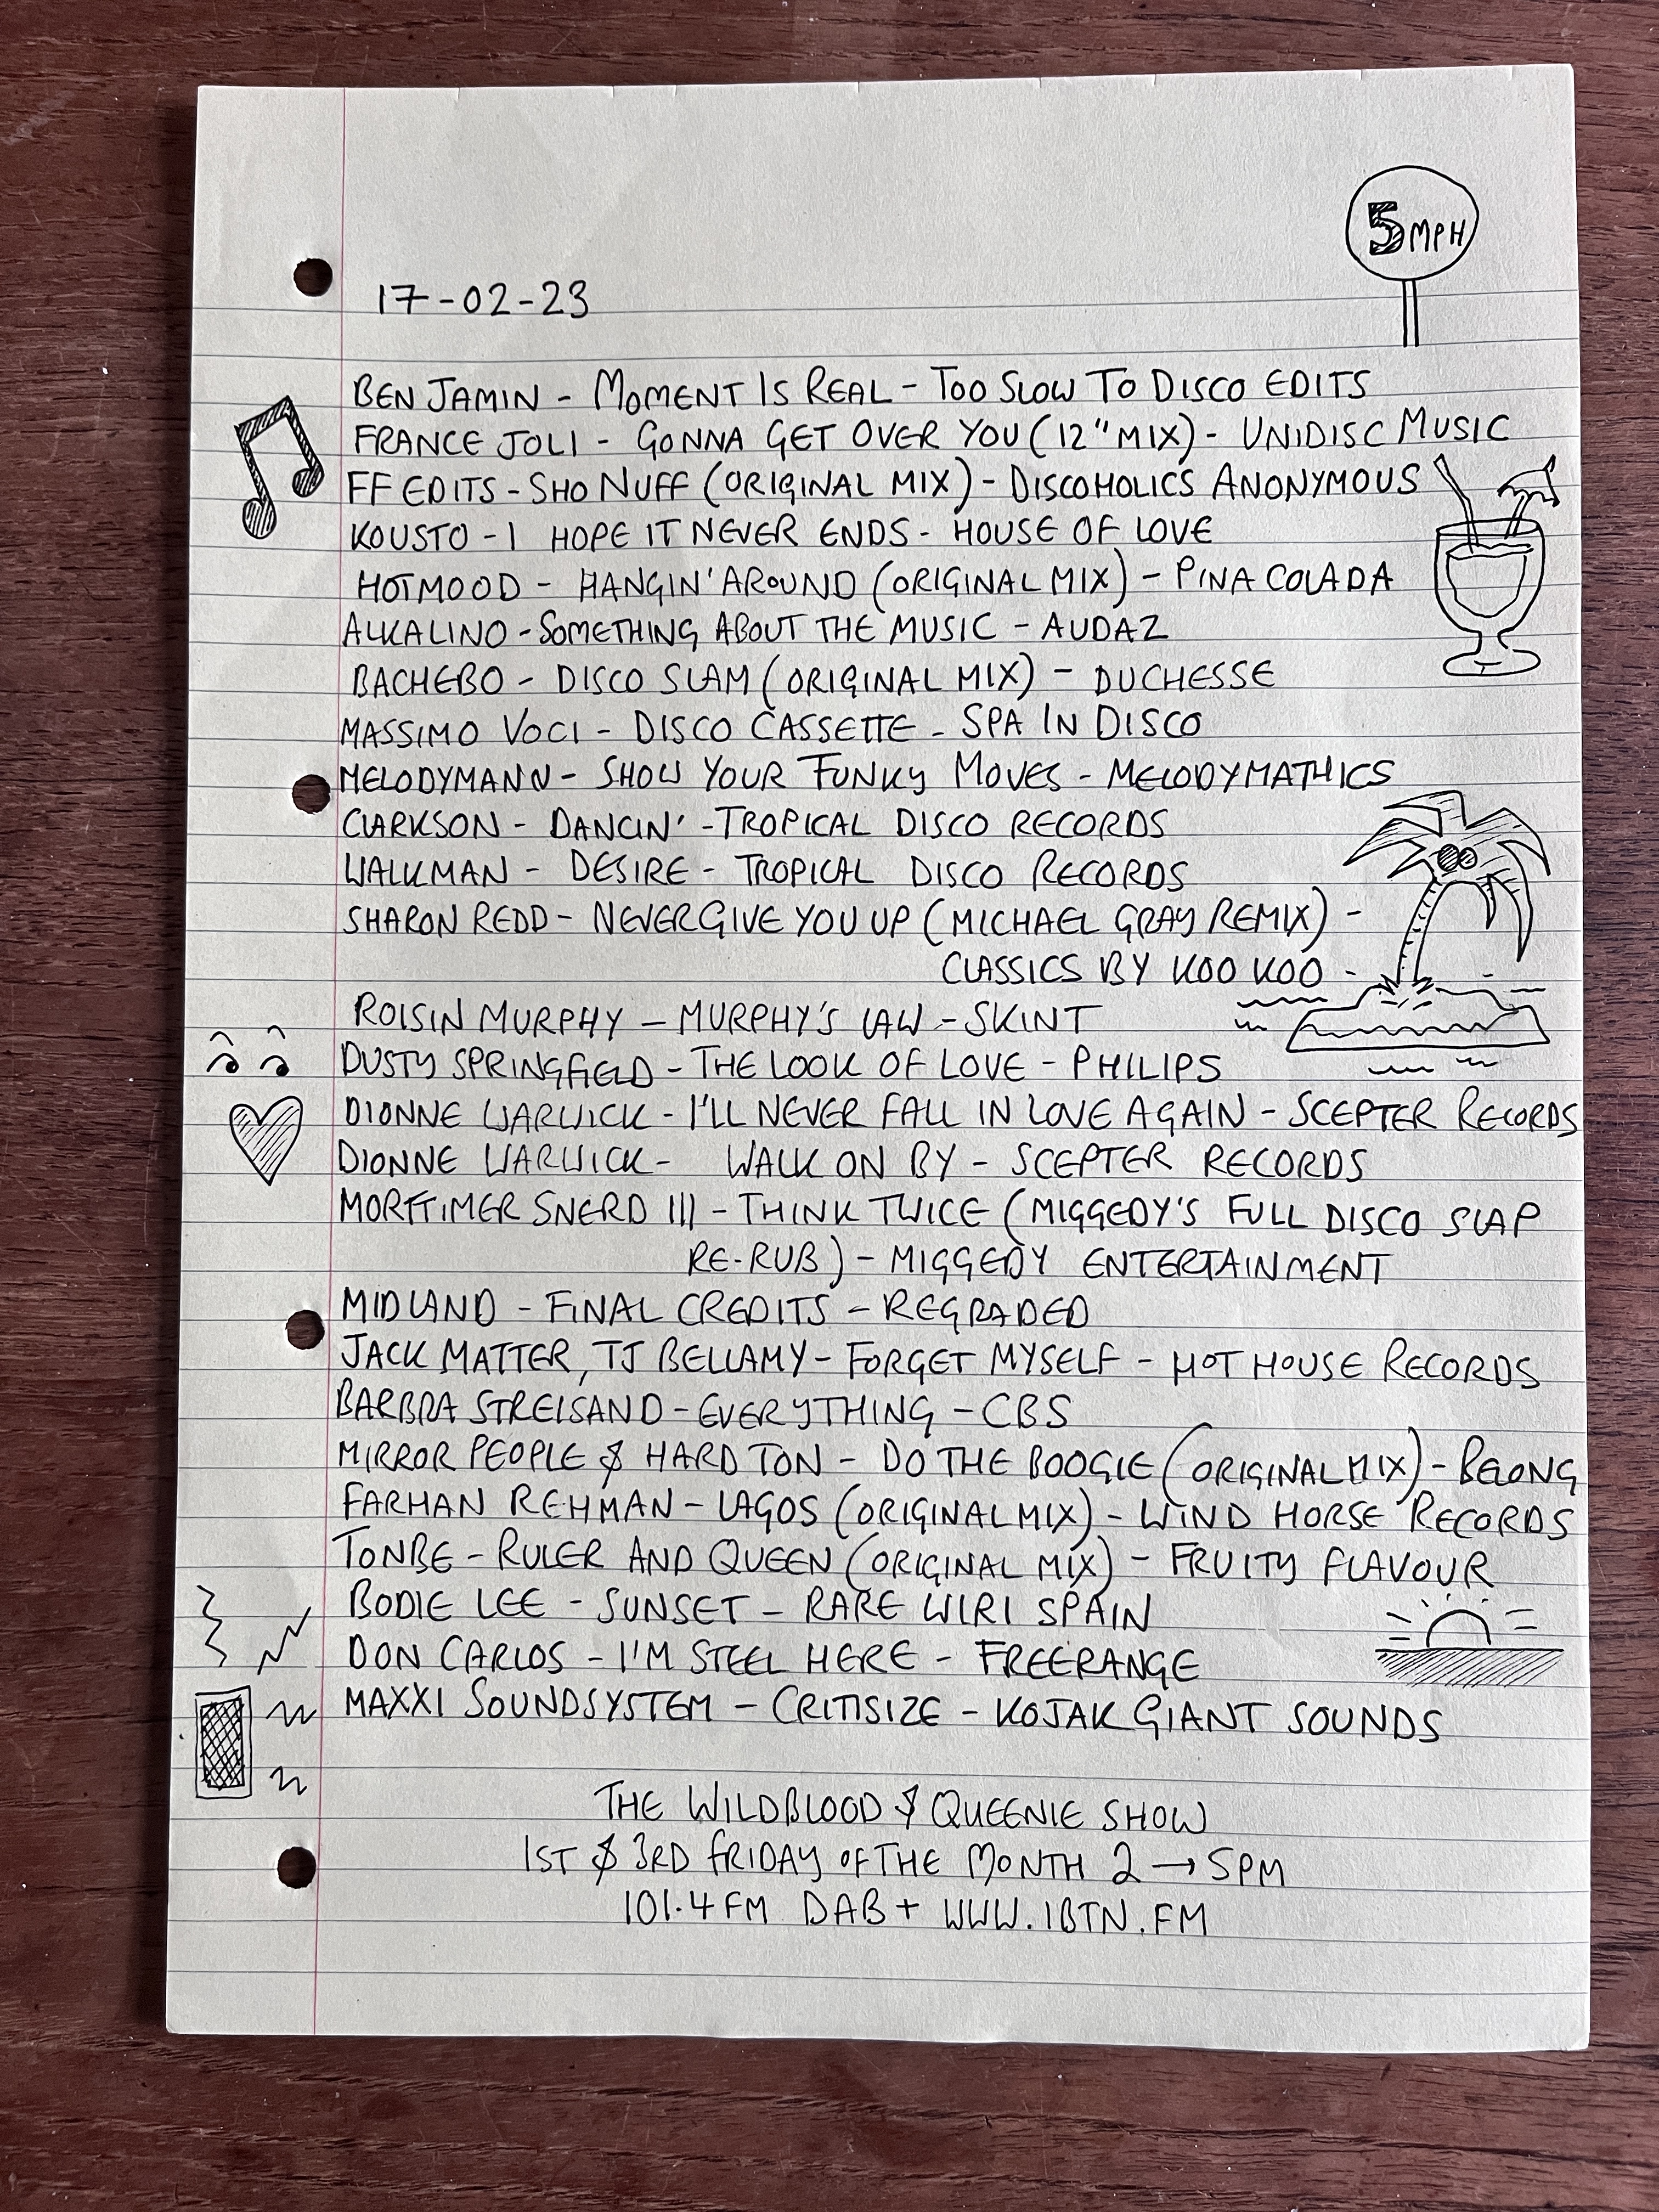 5MPH
17-02-23
BEN JAMIN - MOMENT IS REAL - TOO SLOW TO DISCO EDITS
FRANCE JOLI - GONNA GET OVER YOU (12" MIX) - UNIDISC MUSIC
FF EDITS - SHO NUFF (ORIGINAL MIX) - DISCOHOLICS ANONYMOUS
KOUSTO - I HOPE IT NEVER ENDS - HOUSE OF LOVE
HOTMOOD - HANGIN' AROUND (ORIGINAL MIX) - PINA COLADA
ALKALINO - SOMETHING ABOUT THE MUSIC - AUDAZ
BACHEBO - DISCO SLAM (ORIGINAL MIX) - DUCHESSE
MASSIMO VOCI - DISCO CASSETTE - SPA IN DISCO
MELODYMANN - SHOW YOUR FUNKY MOVES - MELODYMATHICS
CLARKSON - DANCIN' - TROPICAL DISCO RECORDS
WALKMAN - DESIRE - TROPICAL DISCO RECORDS
SHARON REDD - NEVER GIVE YOU UP (MICHAEL GRAY REMIX) -
CLASSICS BY KOO KOO -
ROISIN MURPHY - MURPHY'S LAW - SKINT
DUSTY SPRINGFIELD - THE LOOK OF LOVE - PHILIPS
DIONNE WARWICK - I'LL NEVER FALL IN LOVE AGAIN - SCEPTER RECORDS
DIONNE WARWICK - WALK ON BY - SCEPTER RECORDS
MORTTIMER SNERD III - THINK TWICE (MIGGEDY'S FULL DISCO SLAP
RE-RUB) - MIGGEDY ENTERTAINMENT
MIDLAND - FINAL CREDITS - REGRADED
JACK MATTER, TJ BELLAMY - FORGET MYSELF - HOT HOUSE RECORDS
BARBRA STREISAND - EVERYTHING - CBS
MIRROR PEOPLE & HARD TON - DO THE BOOGIE (ORIGINAL MIX) - BELONG
FARHAN REHMAN - LAGOS (ORIGINAL MIX) - WIND HORSE RECORDS
TONBE - RULER AND QUEEN (ORIGINAL MIX) - FRUITY FLAVOUR
BODIE LEE - SUNSET - RARE WIRI SPAIN
DON CARLOS - I'M STEEL HERE - FREERANGE
MAXXI SOUNDSYSTEM - CRITISIZE - KOJAK GIANT SOUNDS
THE WILDBLOOD & QUEENIE SHOW
1ST & 3RD FRIDAY OF THE MONTH 2 → 5PM
101.4 FM DAB+ WWW.1BTN.FM